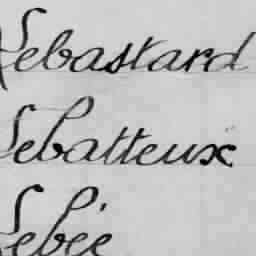 Lebastard
Lebatteux
Lebée